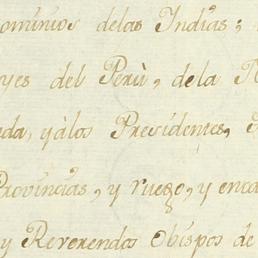 ominios delas Indias;
yes del Perù, dela N
da, yàlos Presidentes,
Provincias, y ruego, y enca
y Reverendos Obispos de